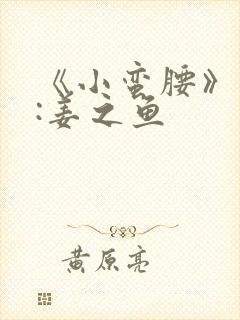 《小蛮腰》
:姜之鱼
黄原亮